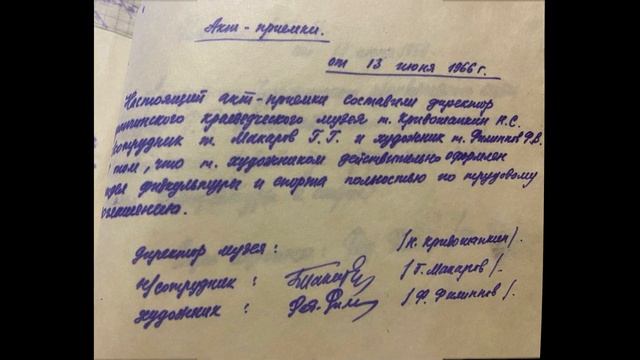 Акт-приемки.
от 13 июня 1966 г.
Настоящий акт-приемки составили директор
краеведческого музея т. Кривошапкин Н.С.
сотрудник т. Макаров Г.Г. и художник т. Филиппов Ф.В.
том, что т. художником действительно оформлен
физкультуры и спорта полностью по трудовому
директор музея: /Н. Кривошапкин/.
н/сотрудник: /Г. Макаров/.
художник: /Ф. Филиппов/.